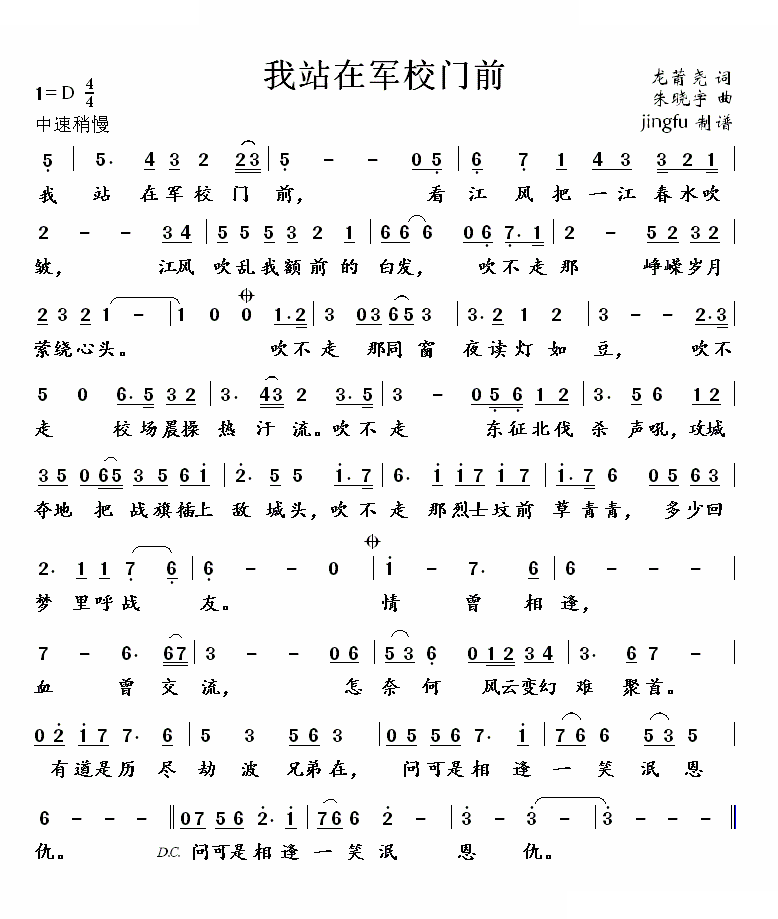 我站在军校门前
1=D 4/4
龙莆尧 词
朱晓宇 曲
中速稍慢
jingfu 制谱
5 5· 4 3 2 23 | 5 - - 05 | 6 7 1 4 3 3 2 1 |
我 站 在军校门 前, 看江风把一江春水吹
2 - - 34 | 5 5 5 3 2 1 | 6 6 6 06 7·1 | 2 - 5 2 3 2 |
皱, 江风吹乱我额前的白发, 吹不走那 峥嵘岁月
2 3 2 1 1 - | 1 0 0 1·2 | 3 03 65 3 | 3·2 1 2 | 3 - - 2·3 |
萦绕心头。 吹不走 那同窗 夜读灯如豆, 吹不
5 0 6·5 3 2 | 3· 43 2 3·5 | 3 - 056 1 2 | 3· 5 6 1 2 |
走 校场晨操热汗流。吹不走 东征北伐杀声吼,攻城
3 5 0 65 3 5 6 1 | 2· 5 5 1·7 | 6· 1 1 7 1 2 | 3· 5 6 0563 |
夺地 把战旗插上敌城头,吹不走那烈士坟前草青青, 多少回
2· 1 1 7 6 | 6 - - 0 | 1 - 7· 6 | 6 - - - |
梦里呼战友。 情曾相逢,
7 - 6· 67 | 3 - - 06 | 5 3 6 0 1 2 3 4 | 3· 6 7 - |
血 曾交流, 怎奈何 风云变幻难聚首。
0 2 1 7 7· 6 | 5 3 5 6 3 | 0 5 5 6 7· 1 | 7 6 6 5 3 5 |
有道是历尽劫波兄弟在, 问可是相逢一笑泯恩
6 - - - || 07 5 6 2·1 | 7 6 6 2 - | 3 - 3 - | 3 - - - ||
仇。 D.C. 问可是相逢一笑泯恩仇。